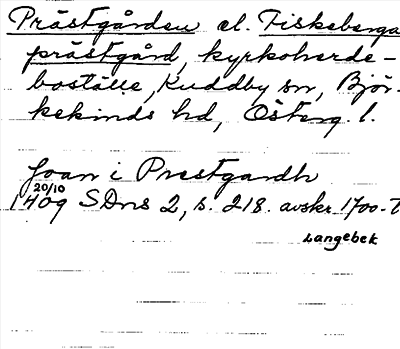 Prästgården el. Fiskeberga
prästgård, kyrkoherde-
boställe, Kuddby sn, Björ-
kekinds hd, Österg. l.
Joan i Prestgardh
20/10
1409 SDns 2, s. 218. avskr. 1700-t
Langebek